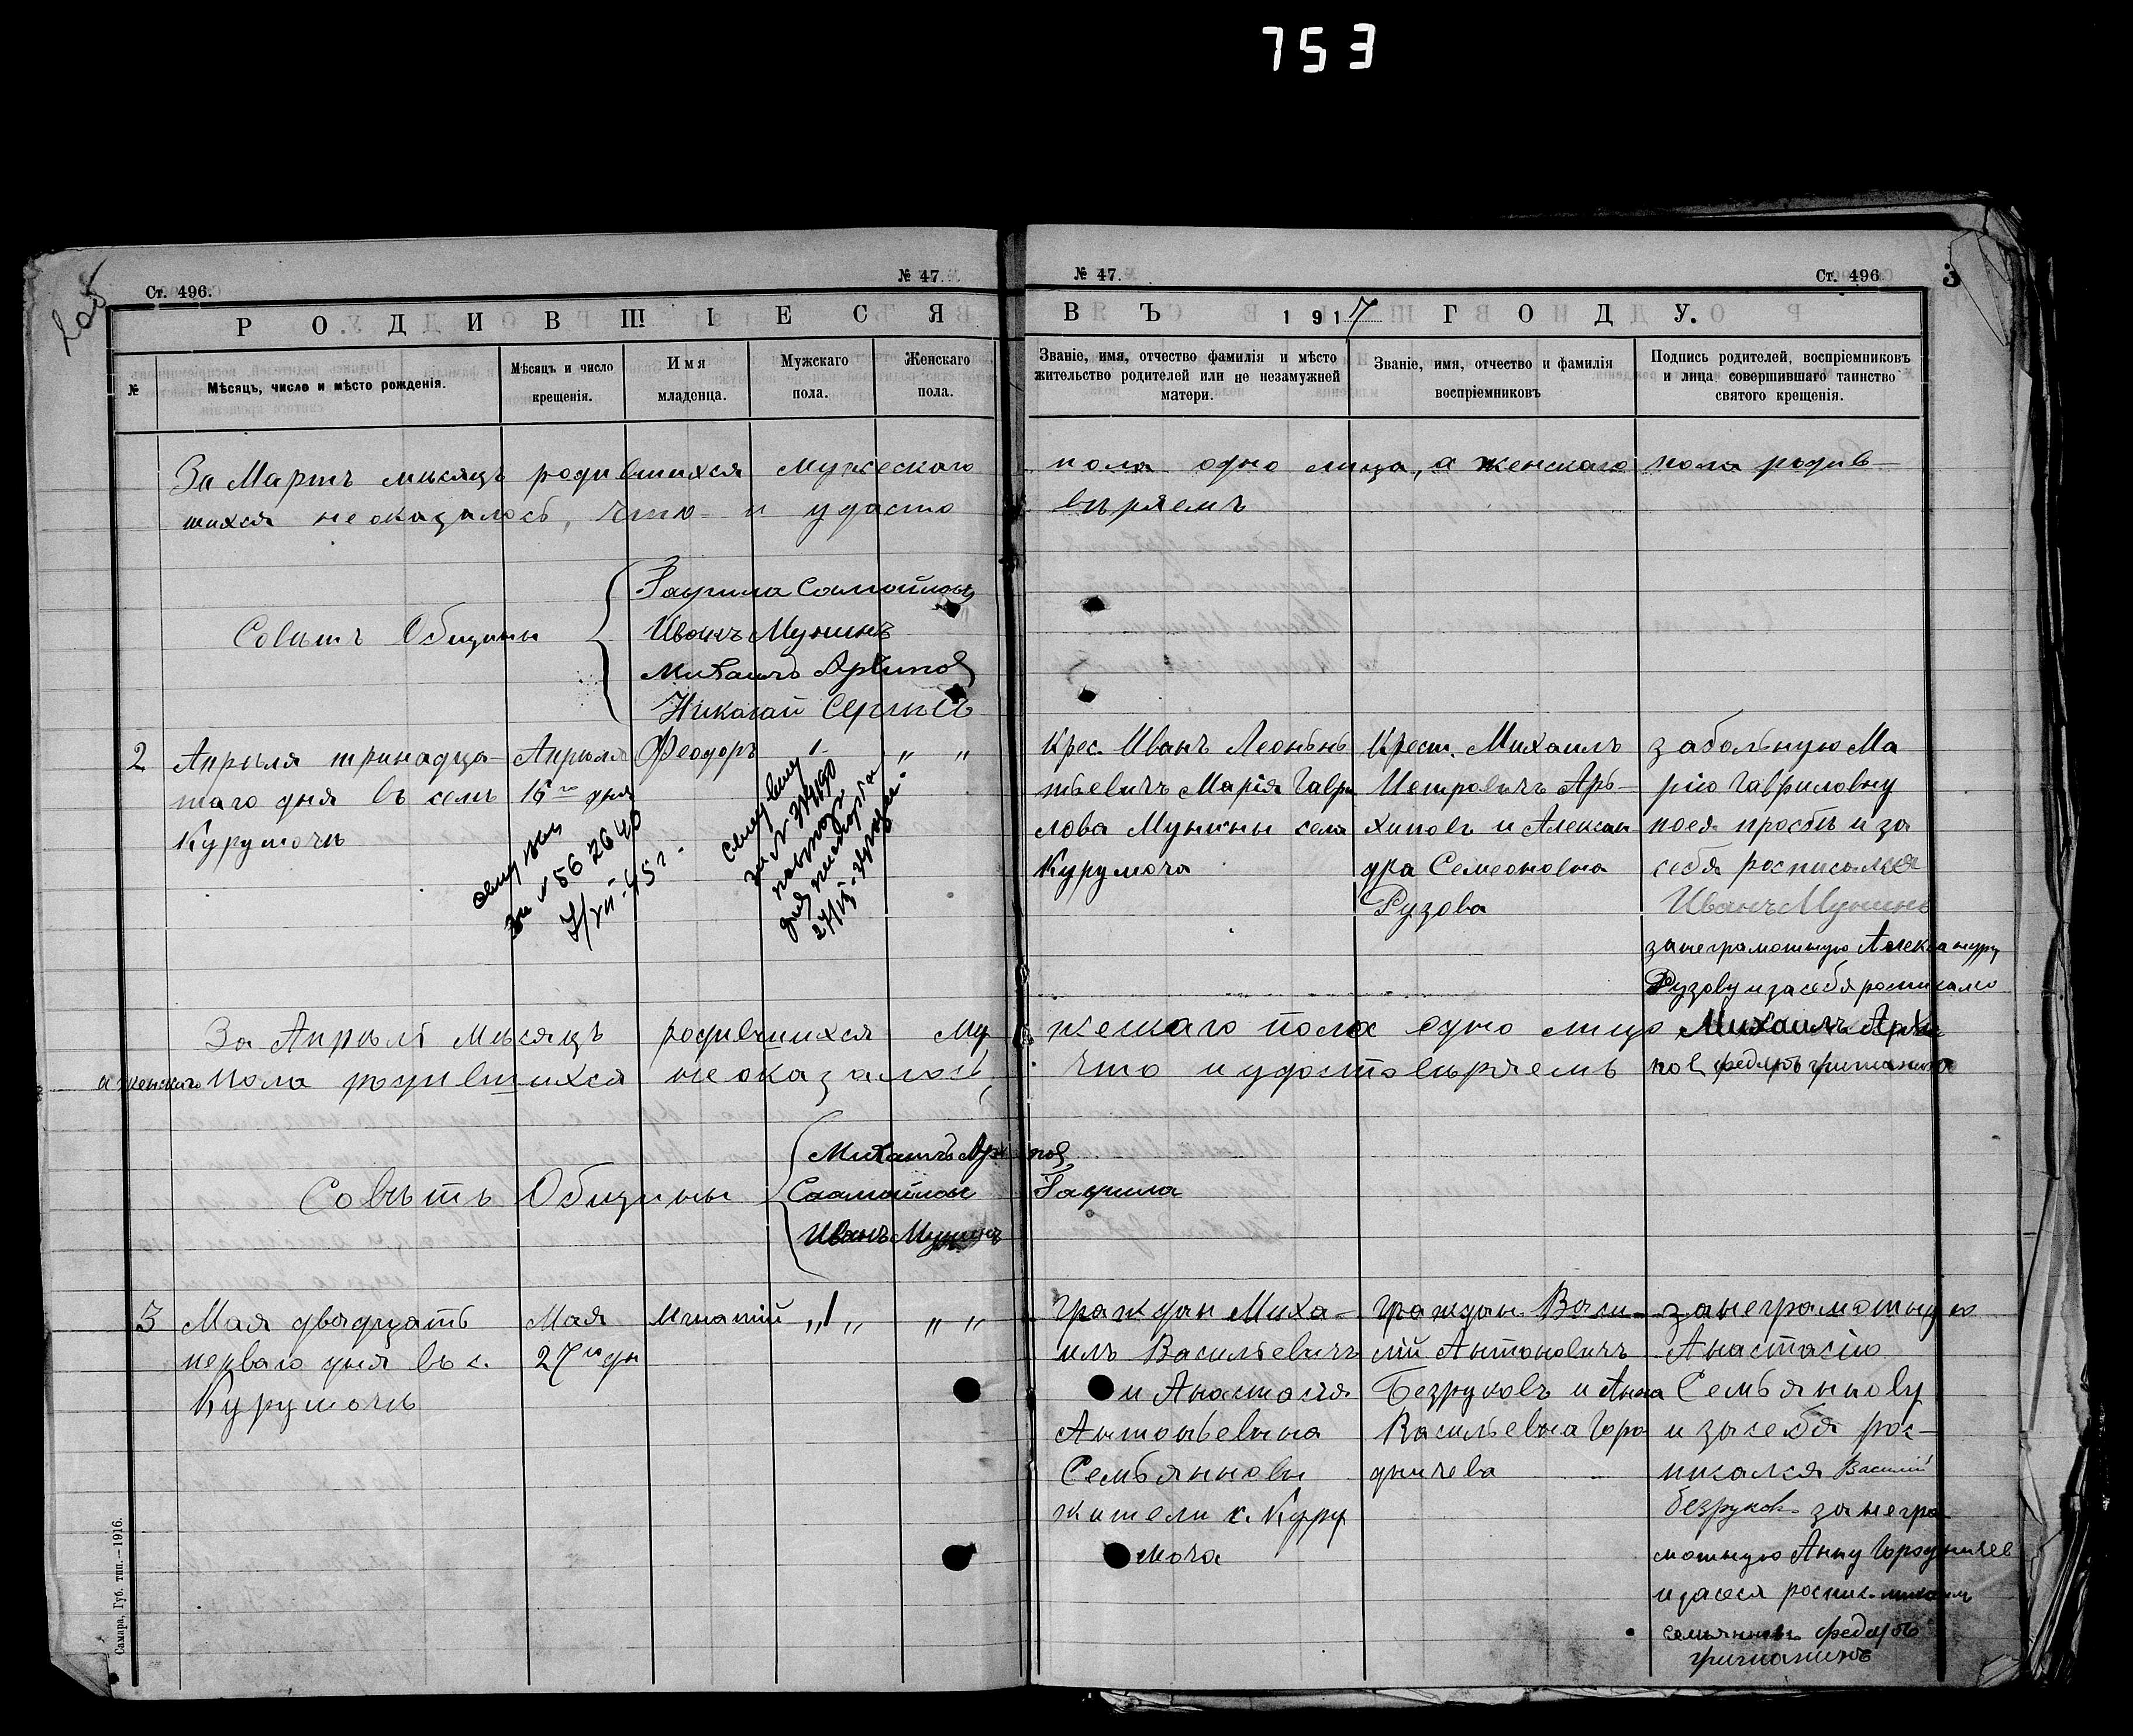 753
Ст. 496.
№ 47.
№ 47.
Ст. 496.
3
РОДИВШІЕСЯ
ВЪ 1917 ГОДУ.
№
Мѣсяцъ, число и мѣсто рожденія.
Мѣсяцъ и число
крещенія.
Имя
младенца.
Мужскаго
пола.
Женскаго
пола.
Званіе, имя, отчество фамилія и мѣсто
жительство родителей или не незамужней
матери.
Званіе, имя, отчество и фамилія
воспріемниковъ
Подпись родителей, воспріемниковъ
и лица совершившаго таинство
святого крещенія.
За Мартъ мѣсяцъ родившихся мужескаго пола одно лицо, а женскаго пола родив-
шихся не оказалось, что и удосто вѣряемъ
Совѣтъ Общины
Гаурила Самойловъ
Иванъ Мунинъ
Михаилъ Архипов
Николай Сергѣевъ
2
Апрѣля тринадца-
таго дня въ селѣ
Курумочѣ
Апрѣля
16го дня
Феодоръ
1
" "
Крес. Иванъ Леонтьѣ
тьевичъ Марія Гаври
лова Мунины села
Курумоча
Крест. Михаилъ
Петровичъ Ар-
хиповъ и Алексан
дра Семеоновна
Рузова
за больную Ма
рію Гавриловну
поея прозбѣ и за
себя росписался
Иванъ Мунинъ
за неграмотную Александру
Рузову и за себя росписался
Михаилъ Архи
пов федоръ григашинъ
за № 562640
7/VII-45 г.
за №
паспорта
За Апрѣль мѣсяцъ родившихся му жескаго пола одно лицо
а женскаго пола родившихся не оказалось, что и удостовѣряемъ
Совѣтъ Общины
Михаилъ Архипов
Самойлов Гаурила
Иванъ Мунинъ
3
Мая двадцать
перваго дня въ с.
Курумочѣ
Мая
27го дн
Игнатій
„1„
" "
граждан Миха-
илъ Васильевичъ
и Анастасія
Антоньевна
Семьянновы
жители с. Куру
моча
граждан. Васи-
лій Антоновичъ
Безруковъ и Анна
Васильевна Горо
дничева
за неграмотную
Анастасію
Семьяннову
и за себя рос-
писался Василій
безруков за негра
мотную Анну Городничев
и засея роспис. михаилъ
семьянновъ федоръ
григашинъ
Самара, Губ. тип.—1916.